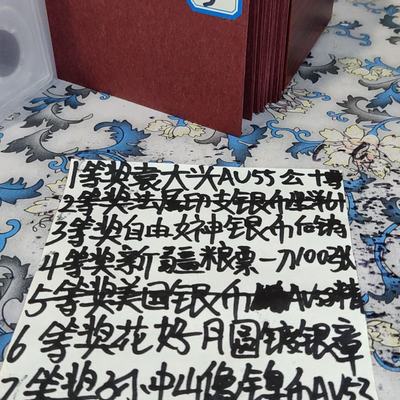 5
1等奖袁大头AU55公博
2等奖法属印支银币坐洋
3等奖自由女神银币
4等奖新疆粮票一刀100张
5等奖美国银币AU53
6等奖花好月圆镀银章
7等奖孙中山像镍币AU53